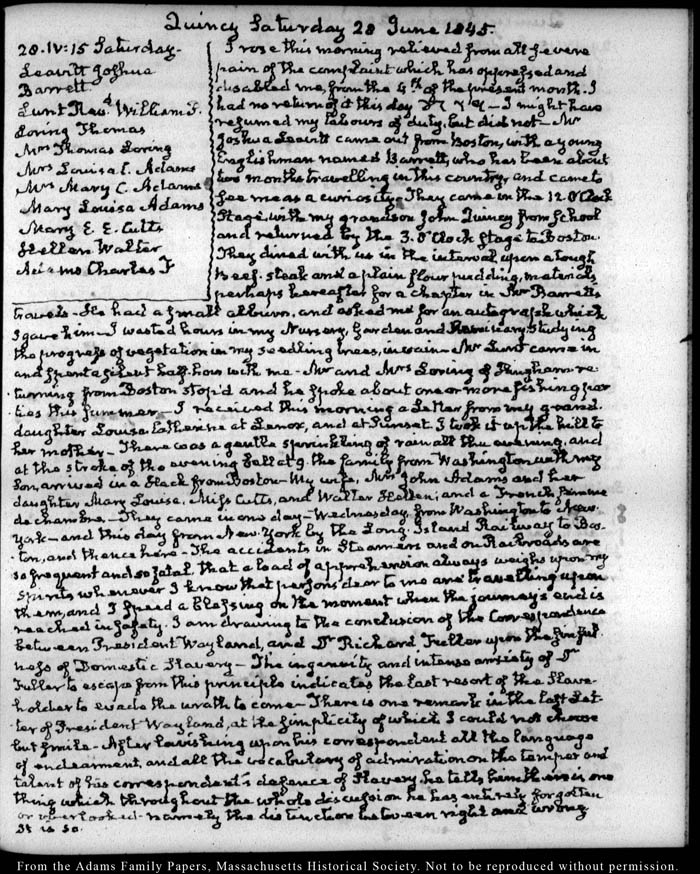 Quincy Saturday 28 June 1845.
28. IV:15 Saturday.
Leavitt Joshua
Barrett
Lunt Revd. William P.
Loring Thomas
Mrs Thomas Loring
Mrs Louisa C. Adams
Mrs Mary C. Adams
Mary Louisa Adams
Mary E. E. Cutts
Hellen Walter
Adams Charles F
I rose this morning relieved from all severe
pain of the complaint which has oppressed and
disabled me, from the 4th of the present month. I
had no return of it this day — I might have
resumed my labours of duty, but did not — Mr
Joshua Leavitt came out from Boston, with a young
Englishman named Barrett, who has been about
two months travelling in this country, and came to
see me as a curiosity — They came in the 12. O'Clock
Stage, with my grandson John Quincy from School
and returned by the 3. O'Clock Stage to Boston.
They dined with us in the interval, upon a tough
beef-steak and a plain flour pudding, materials,
perhaps hereafter for a chapter in Mr Barrett's
travels — He had a small album, and asked me for an autograph which
I gave him — I wasted hours in my Nursery, Garden and Seminary, studying
the progress of vegetation in my seedling trees, in vain — Mr Lunt came in
and spent a silent half hour with me — Mr and Mrs Loring of Hingham re-
turning from Boston stop'd and he spoke about one or more fishing par
ties this summer — I received this morning a Letter from my grand-
daughter Louisa Catherine at Lenox, and at Sunset I took it up the hill to
her mother — There was a gentle sprinkling of rain all the evening, and
at the stroke of the evening bell at 9. the family from Washington with my
Son, arrived in a Hack from Boston — My wife, Mrs John Adams and her
daughter Mary Louisa, Miss Cutts, and Walter Hellen; and a French femme
de chambre — They came in one day — Wednesday, from Washington to New-
York — and this day from New-York by the Long-Island Railway to Bos-
ton, and thence here — The accidents in Steamers and on Railroads are
so frequent and so fatal that a load of apprehension always weighs upon my
Spirits whenever I know that persons dear to me are travelling upon
them, and I speed a blessing on the moment when the journey's end is
reached in safety. I am drawing to the conclusion of the Correspondence
between President Wayland, and Dr Richard Fuller upon the sinful-
ness of Domestic Slavery — The ingenuity and intense anxiety of Dr
Fuller to escape from this principle indicates the last resort of the Slave-
holder to evade the wrath to come — There is one remark in the last Let-
ter of President Wayland, at the simplicity of which I could not choose
but smile — After lavishing upon his correspondent all the language
of endearment, and all the vocabulary of admiration on the temper and
talent of his correspondent's defence of Slavery he tells him there is one
thing which throughout the whole discussion he has entirely forgotten
or overlooked — namely the distinction between right and wrong
It is so.
From the Adams Family Papers, Massachusetts Historical Society. Not to be reproduced without permission.